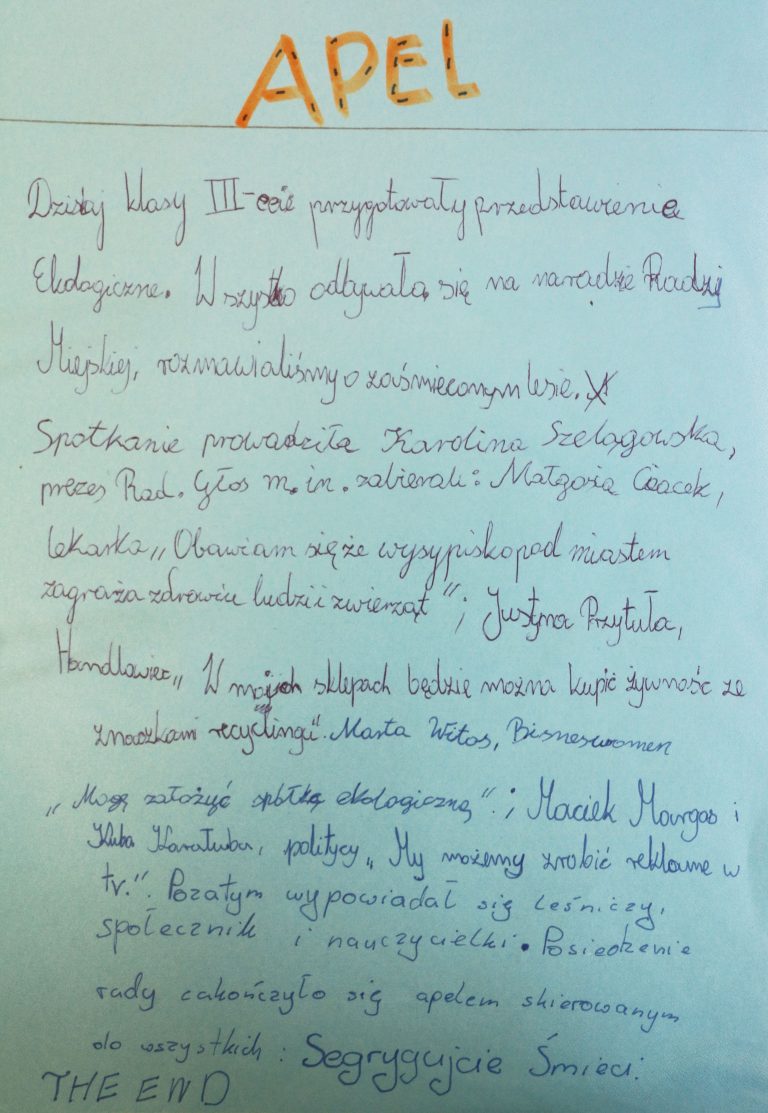 APEL
Dzisiaj klasy III-ecie przygotowały przedstawienie
Ekologiczne. Wszystko odbywało się na naradzie Radzy
Miejskiej, rozmawialiśmy o zaśmieconym lesie.
Spotkanie prowadziła Karolina Szelągowska,
prezes Rad. Głos m.in. zabierali: Małgosia
lekarka „Obawiam się że wysypisko pod miastem
zagraża zdrowiu ludzi i zwierząt"; Justyna Przytuła,
Handlowiec „W moich sklepach będzie można kupić żywność ze
znaczkami recyclingu". Marta Witos, Bisneswomen
„Mogę założyć spółkę ekologiczną".; Maciek Margas i
Kuba Karałuba, politycy „My możemy zrobić reklamę w
tv.". Pozatym wypowiadał się leśniczy,
społecznik i nauczycielki. Posiedzenie
rady zakończyło się apelem skierowanym
do wszystkich: Segrygujcie Śmieci!
THE END